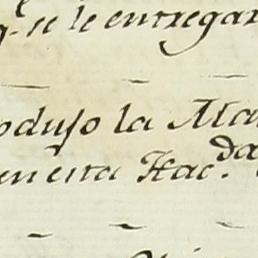 q.e se le entregar
odujo la Ata
en esta Hac.da